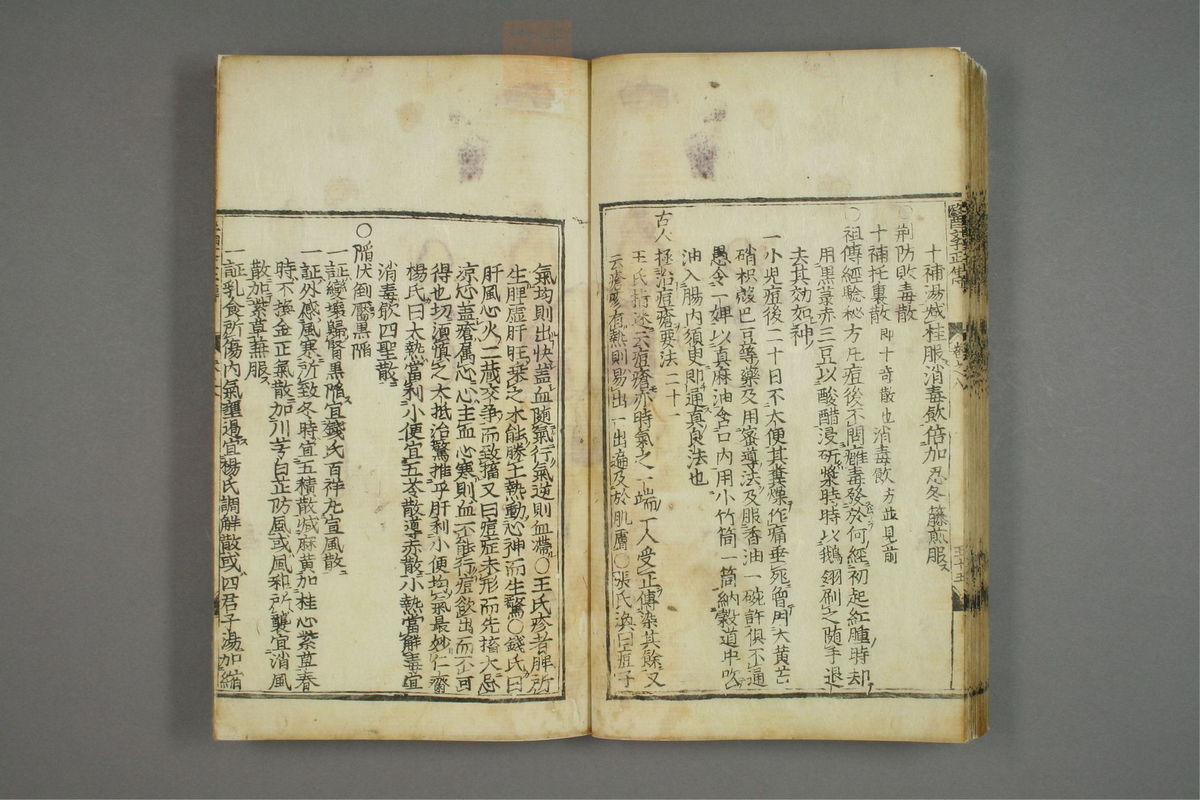 醫學正傳
卷之八
五十五
十補湯減桂服消毒飲倍加忍冬籐煎服
○荆防敗毒散
十補托裏散即十奇散也消毒飲方並見前
○祖傳經驗秘方凡痘後不問癰毒發於何經初起紅腫時却
用黑菉赤三豆以酸醋浸硏漿時時以鵝翎刷之隨手退
去其効如神
一小兒痘後二十日不大便其糞燥作痛垂死曾用大黃芒
硝枳殼巴豆等藥及用蜜導法及服香油一碗許俱不通
愚令一婢以真麻油含口內用小竹筒一筒納穀道中吹
油入腸內須臾即通真良法也
古人拯治痘瘡要法二十一
王氏指迷云痘瘡亦時氣之一端一人受正傳染其餘又
云瘡疹有熱則易出一出遍及於肌膚○張氏渙曰痘子
氣均則出快蓋血隨氣行氣逆則血滯○王氏疹者脾所
生脾虛肝旺乘之木能勝土熱動心神而生驚○錢氏曰
肝風心火二藏交爭而致搐又曰痘症未形而先搐大忌
凉心蓋瘡屬心心主血心寒則血不能行痘欲出而不可
得也切須慎之大抵治驚推乎肝利小便均氣最妙仁齋
楊氏曰大熱當利小便宜五苓散導赤散小熱當解毒宜
消毒飲四聖散
○陷伏倒靨黑陷
一証變壞歸腎黑陷宜錢氏百祥丸宣風散
一証外感風寒所致冬時宜五積散減麻黃加桂心紫草春
時不換金正氣散加川芎白芷防風或風邪所襲宜消風
散加紫草煎服
一証乳食所傷內氣壅遏宜楊氏調解散或四君子湯加縮